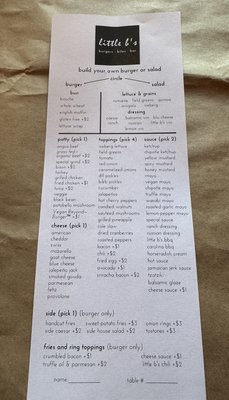 little b's
burgers bites bar
build your own burger or salad
circle
burger
salad
bun
brioche
whole wheat
english muffin
gluten free +$2
lettuce wrap
lettuce & grains
romaine field greens quinoa
arugula iceberg
dressing
balsamic vin bleu cheese
caesar russian little b's vin
ranch lemon vin
patty (pick 1)
angus beef
grass-fed +
organic beef +$2
special grind +$2
bison +$2
turkey
grilled chicken
fried chicken +$1
tuna +$2
veggie
black bean
portobello mushroom
Vegan Beyond-
Burger™ +$3
cheese (pick 1)
american
cheddar
swiss
mozzarella
goat cheese
blue cheese
jalapeño jack
smoked gouda
parmesean
feta
provolone
toppings (pick 4)
iceberg lettuce
field greens
tomato
red onion
caramelized onions
dill pickles
b&b pickles
cucumber
jalapeños
hot cherry peppers
candied walnuts
sautéed mushrooms
grilled pineapple
cole slaw
dried cranberries
roasted peppers
bacon +$1
chili +$2
fried egg +$2
avocado +$2
sriracha bacon +$2
sauce (pick 2)
ketchup
chipotle ketchup
yellow mustard
spicy mustard
honey mustard
mayo
vegan mayo
chipotle mayo
truffle mayo
wasabi mayo
roasted garlic mayo
lemon pepper mayo
special sauce
ranch dressing
russian dressing
little b's bbq
carolina bbq
horseradish cream
hot sauce
jamaican jerk sauce
tzatziki
balsamic glaze
cheese sauce +$1
side (pick 1) (burger only)
handcut fries sweet potato fries +$3 onion rings +$3
side caesar +$2 side house salad +$2 tostones +$3
fries and ring toppings (burger only)
crumbled bacon +$1 cheese sauce +$1
truffle oil & parmesan +$2 little b's chili +$2
name table #